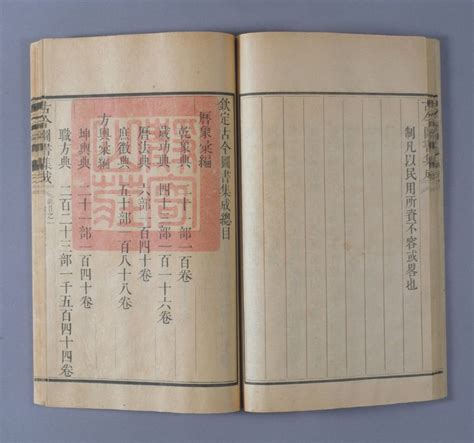 古今圖書集成
制凡以民用所資不容或畧也
欽定古今圖書集成總目
曆象彙編
乾象典 二十一部一百卷
歲功典 四十三部一百一十六卷
曆法典 六部一百四十卷
庶徵典 五十部一百八十八卷
方輿彙編
坤輿典 二十一部一百四十卷
職方典 二百二十三部一千五百四十四卷
古今圖書集成